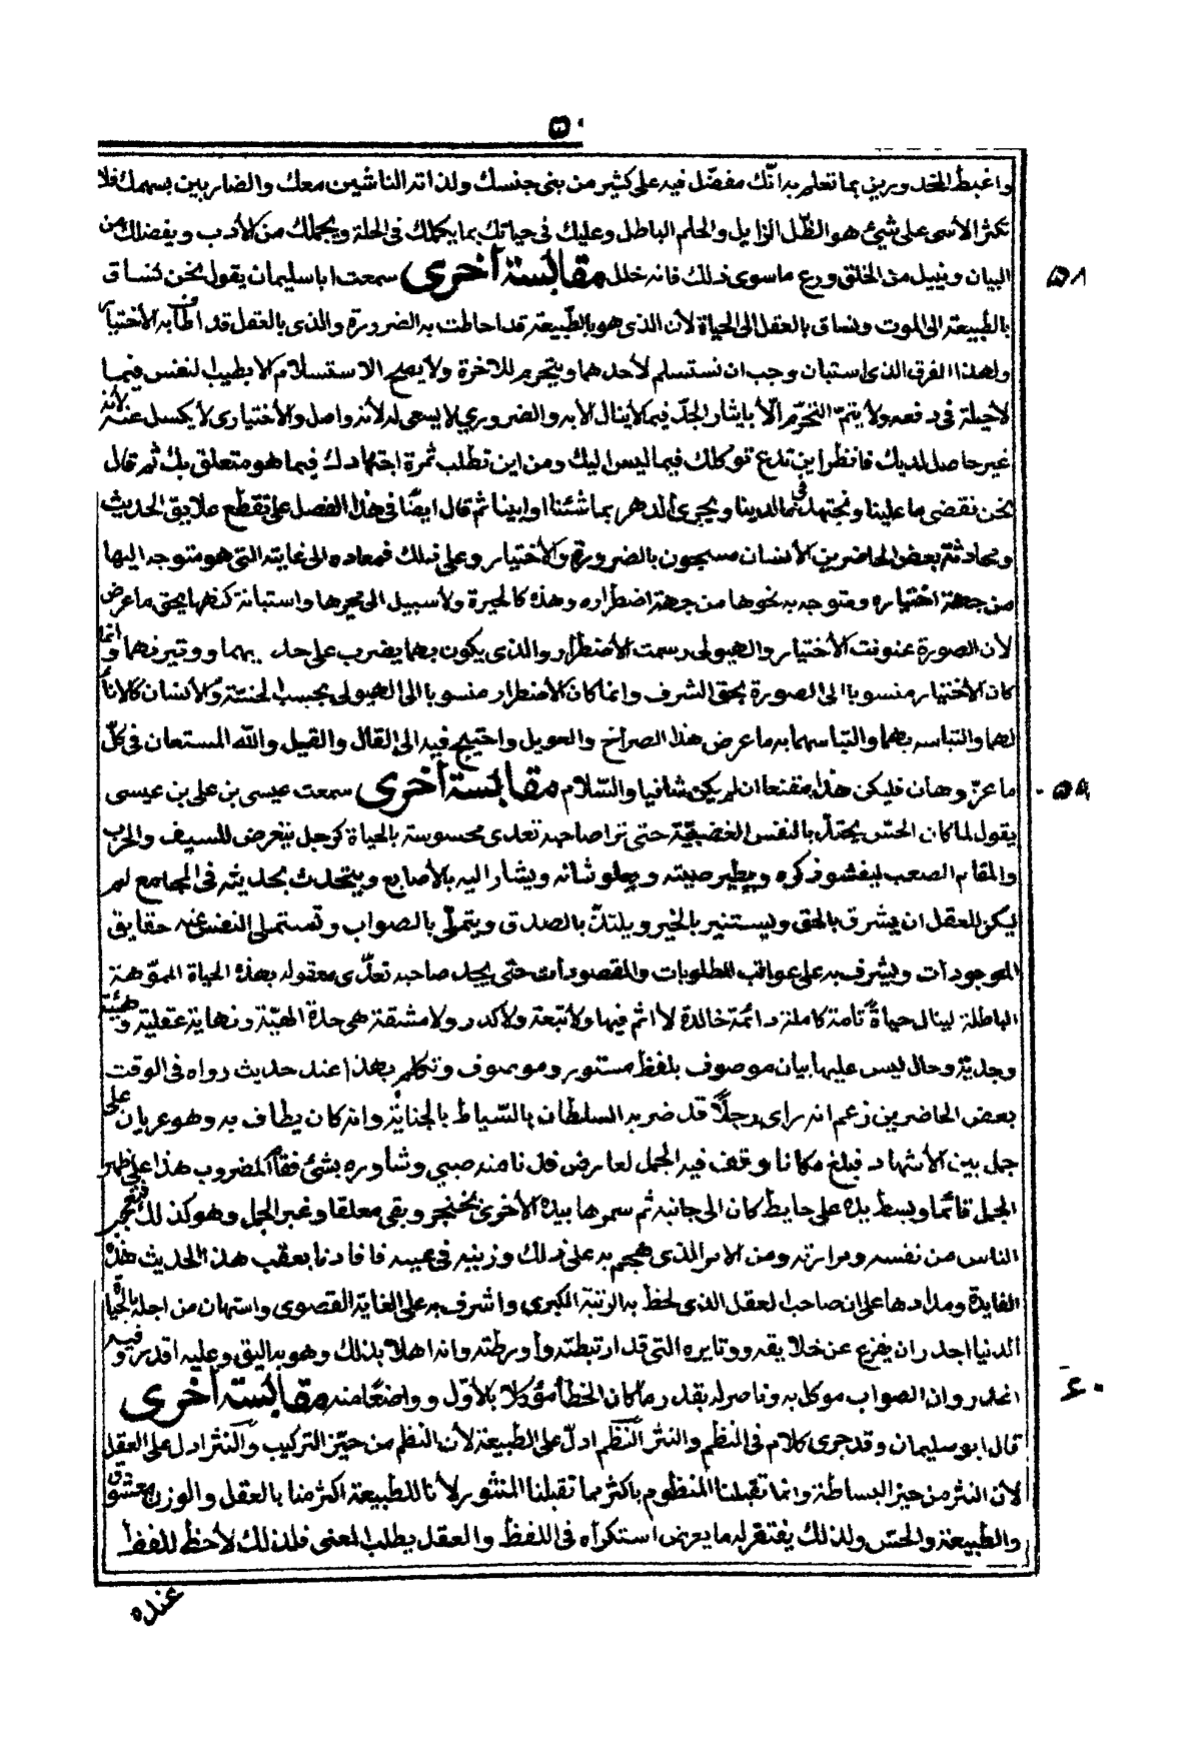 ٥٠
واغبط المتحد وبرين بما تعلم به انّك مفضّل فيه على كثير من بني جنسك ولذاته الناشئين معك والضاربين بسهمك فلا
تكثر الأسى على شيئ هو الظّل الزايل والحلم الباطل وعليك في حياتك بما يكملك في الحلة ويجملك من الأدب ويفضلك من
البيان وينيل من الخلق ورع ما سوى ذلك فانه خلل مقابسة أخرى سمعت ابا سليمان يقول نحن نساق
٥٨
بالطّبيعة الى الموت ونساق بالعقل الى الحياة لأن الذى هو بالطّبيعة قد احاطت به الضرورة والذى بالعقل قد اطاف به الأختيار
ولهذا الفرق الذى استبان وجب ان نستسلم لأحدهما ويتجرم للاخرة ولا يصح الاستسلام الا بطيب لنفس فيما
لا حيلة في دفعه ولا يتمّ التحرّم الّا بايثار الجدّ فيما لا ينال الا به والضروري لا يسعى له لأنه واصل والأختيارى لا يكسل عنه لأنه
غير حاصل لديك فانظر اين تدع توكلك فيما ليس اليك ومن اين تطلب ثمرة اجتهادك فيما هو متعلق بك ثم قال
نحن نقضى ما علينا ونجتهد فى ما لدينا ويجرى الدهر بما شئنا او ابينا ثم قال ايضًا فى هذا الفصل على تقطع علايق الحديث
ومحادثة بعض الحاضرين الأنسان مسجون بالضرورة والأختيار وعلى ذلك فمعاده الى غايته التى هو متوجه اليها
من جهة اختياره ومتوجه به نحوها من جهة اضطراره وهذه كالحيرة ولا سبيل الى محرها واستبانة كنهها بحق ما عرض
لأن الصورة عنونت الأختيار والهيولى رسمت الأضطرار والذى يكون بهما يضرب على حد بهما ووتيرتهما وانما
كان الأختيار منسوبا الى الصورة بحق الشرف وانما كان الأضطرار منسوبا الى الهيولى بحسب الخسّة والأنسان كالأناء
لهما والتباسه بهما والتباسهما به ما عرض هذا الصراخ والعويل واحتيج فيه الى القال والقيل والله المستعان فى كلّ
ما عزّ وهان فليكن هذا مقنعا ان لم يكن شافيا والسّلام مقابسة أخرى سمعت عيسى بن على بن عيسى
٥٩
يقول لما كان الحسّ يحتدّ بالنفس الغضبيّة حتى ترا صاحبه تعدى محسوسته بالحياة كرجل يتعرض للسيف والحرب
والمقام الصعب ليفشو ذكره ويطير صيته ويعلو شانه ويشار اليه بالأصابع ويتحدث بحديثه فى المجامع لم
يكن للعقل ان يشرق بالحق ويستنير بالخير ويلتذّ بالصدق ويتملّى بالصواب وتستملى النفس عنه حقايق
الموجودات ويشرف به على عواقب المطلوبات والمقصودات حتى يجد صاحبه تعدّى معقوله بهذه الحياة المموّهة
الباطلة لينال حياةً تامة كاملة دائمة خالدة لا اثم فيها ولا تبعة ولا كدر ولا مشقة هى جدة الهيّة ونهاية عقلية وهيئة
وجديّة وحال ليس عليها بيان موصوف بلفظ مستور وموسوف وتكلم بهذا عند حديث رواه فى الوقت
بعض الحاضرين زعم انه راى رجلًا قد ضربه السلطان بالسّياط بالجناية وانه كان يطاف به وهو عريان على
جمل بين الأشهاد فبلغ مكانا وقف فيه الجمل لعارض فدنا منه صبي وشاوره بشئ فقام المضروب هذا على ظهر
الجمل قائما وبسط يده على حايط كان الى جانبه ثم سمرها بيده الأخرى بخنجر وبقى معلقا وغبر الجمل وهو كذلك فتعجب
الناس من نفسه ومرارته ومن الامر الذى هجم به على ذلك وزينه فى عينه فافادنا بعقب هذا الحديث هذه
الفايدة ومدادها على ان صاحب العقل الذى لحظ به الرتبة الكبرى واشرف به على الغاية القصوى واستهان من اجله بالحياة
الدنيا اجدر ان يفزع عن خلايقه ووتايره التى قد ارتبطته وأورطته وانه اهلا بذلك وهو به اليق وعليه اقدر وفيه
اعذر وان الصواب موكل به وناصر له بقدر ما كان الخطأ مؤكلا بالأوّل وواضعًا منه مقابسة أخرى
٦٠
قال ابو سليمان وقد جرى كلام فى النظم والنثر النّظم ادلّ على الطبيعة لأن النظم من حيّز التركيب والنثر ادل على العقل
لأن النثر من حيز البساطة وانما تقبلنا المنظوم باكثر مما تقبلنا المنثور لأنا للطبيعة اكثر منا بالعقل والوزن معشوق
والطبيعة والحسّ ولذلك يفتقر له ما يعرض استكراه فى اللفظ والعقل يطلب المعنى فلذلك لا حظ للفظ
عنده